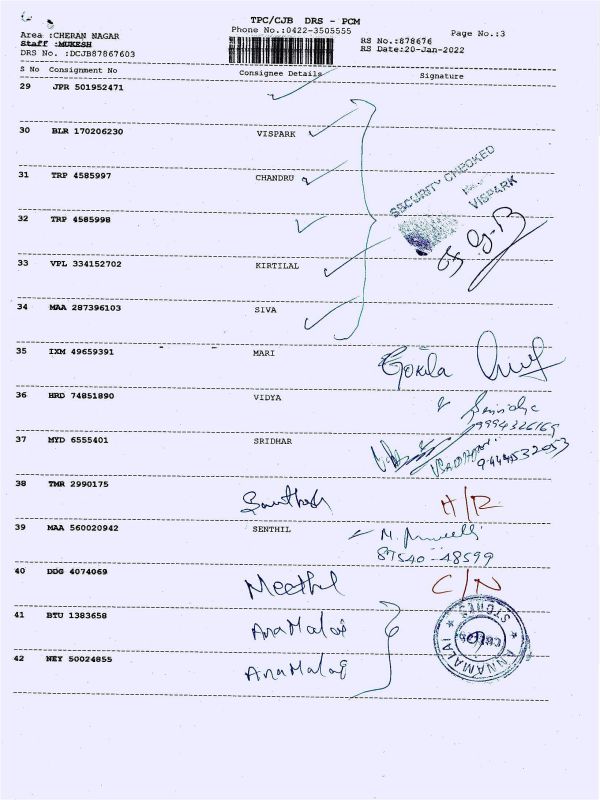 TPC/CJB DRS - PCM
Phone No.:0422-3505555
Page No.:3
Area :CHERAN NAGAR
Staff :MUKESH
RS No.:878676
DRS No. :DCJB87867603
RS Date:20-Jan-2022
S No Consignment No Consignee Details Signature
29 JPR 501952471
30 BLR 170206230 VISPARK
31 TRP 4585997 CHANDRU
SECURITY CHECKED
VISPARK
32 TRP 4585998
33 VPL 334152702 KIRTILAL
34 MAA 287396103 SIVA
35 IXM 49659391 MARI Gokila
36 HRD 74851890 VIDYA
9994326169
37 MYD 6555401 SRIDHAR
38 TMR 2990175 Santhosh H/R
39 MAA 560020942 SENTHIL
87540-48599
40 DDG 4074069 Meethel C/N
41 BTU 1383658 AnaMalai
ANNAMALAI STORES
42 NEY 50024855 AnaMalai